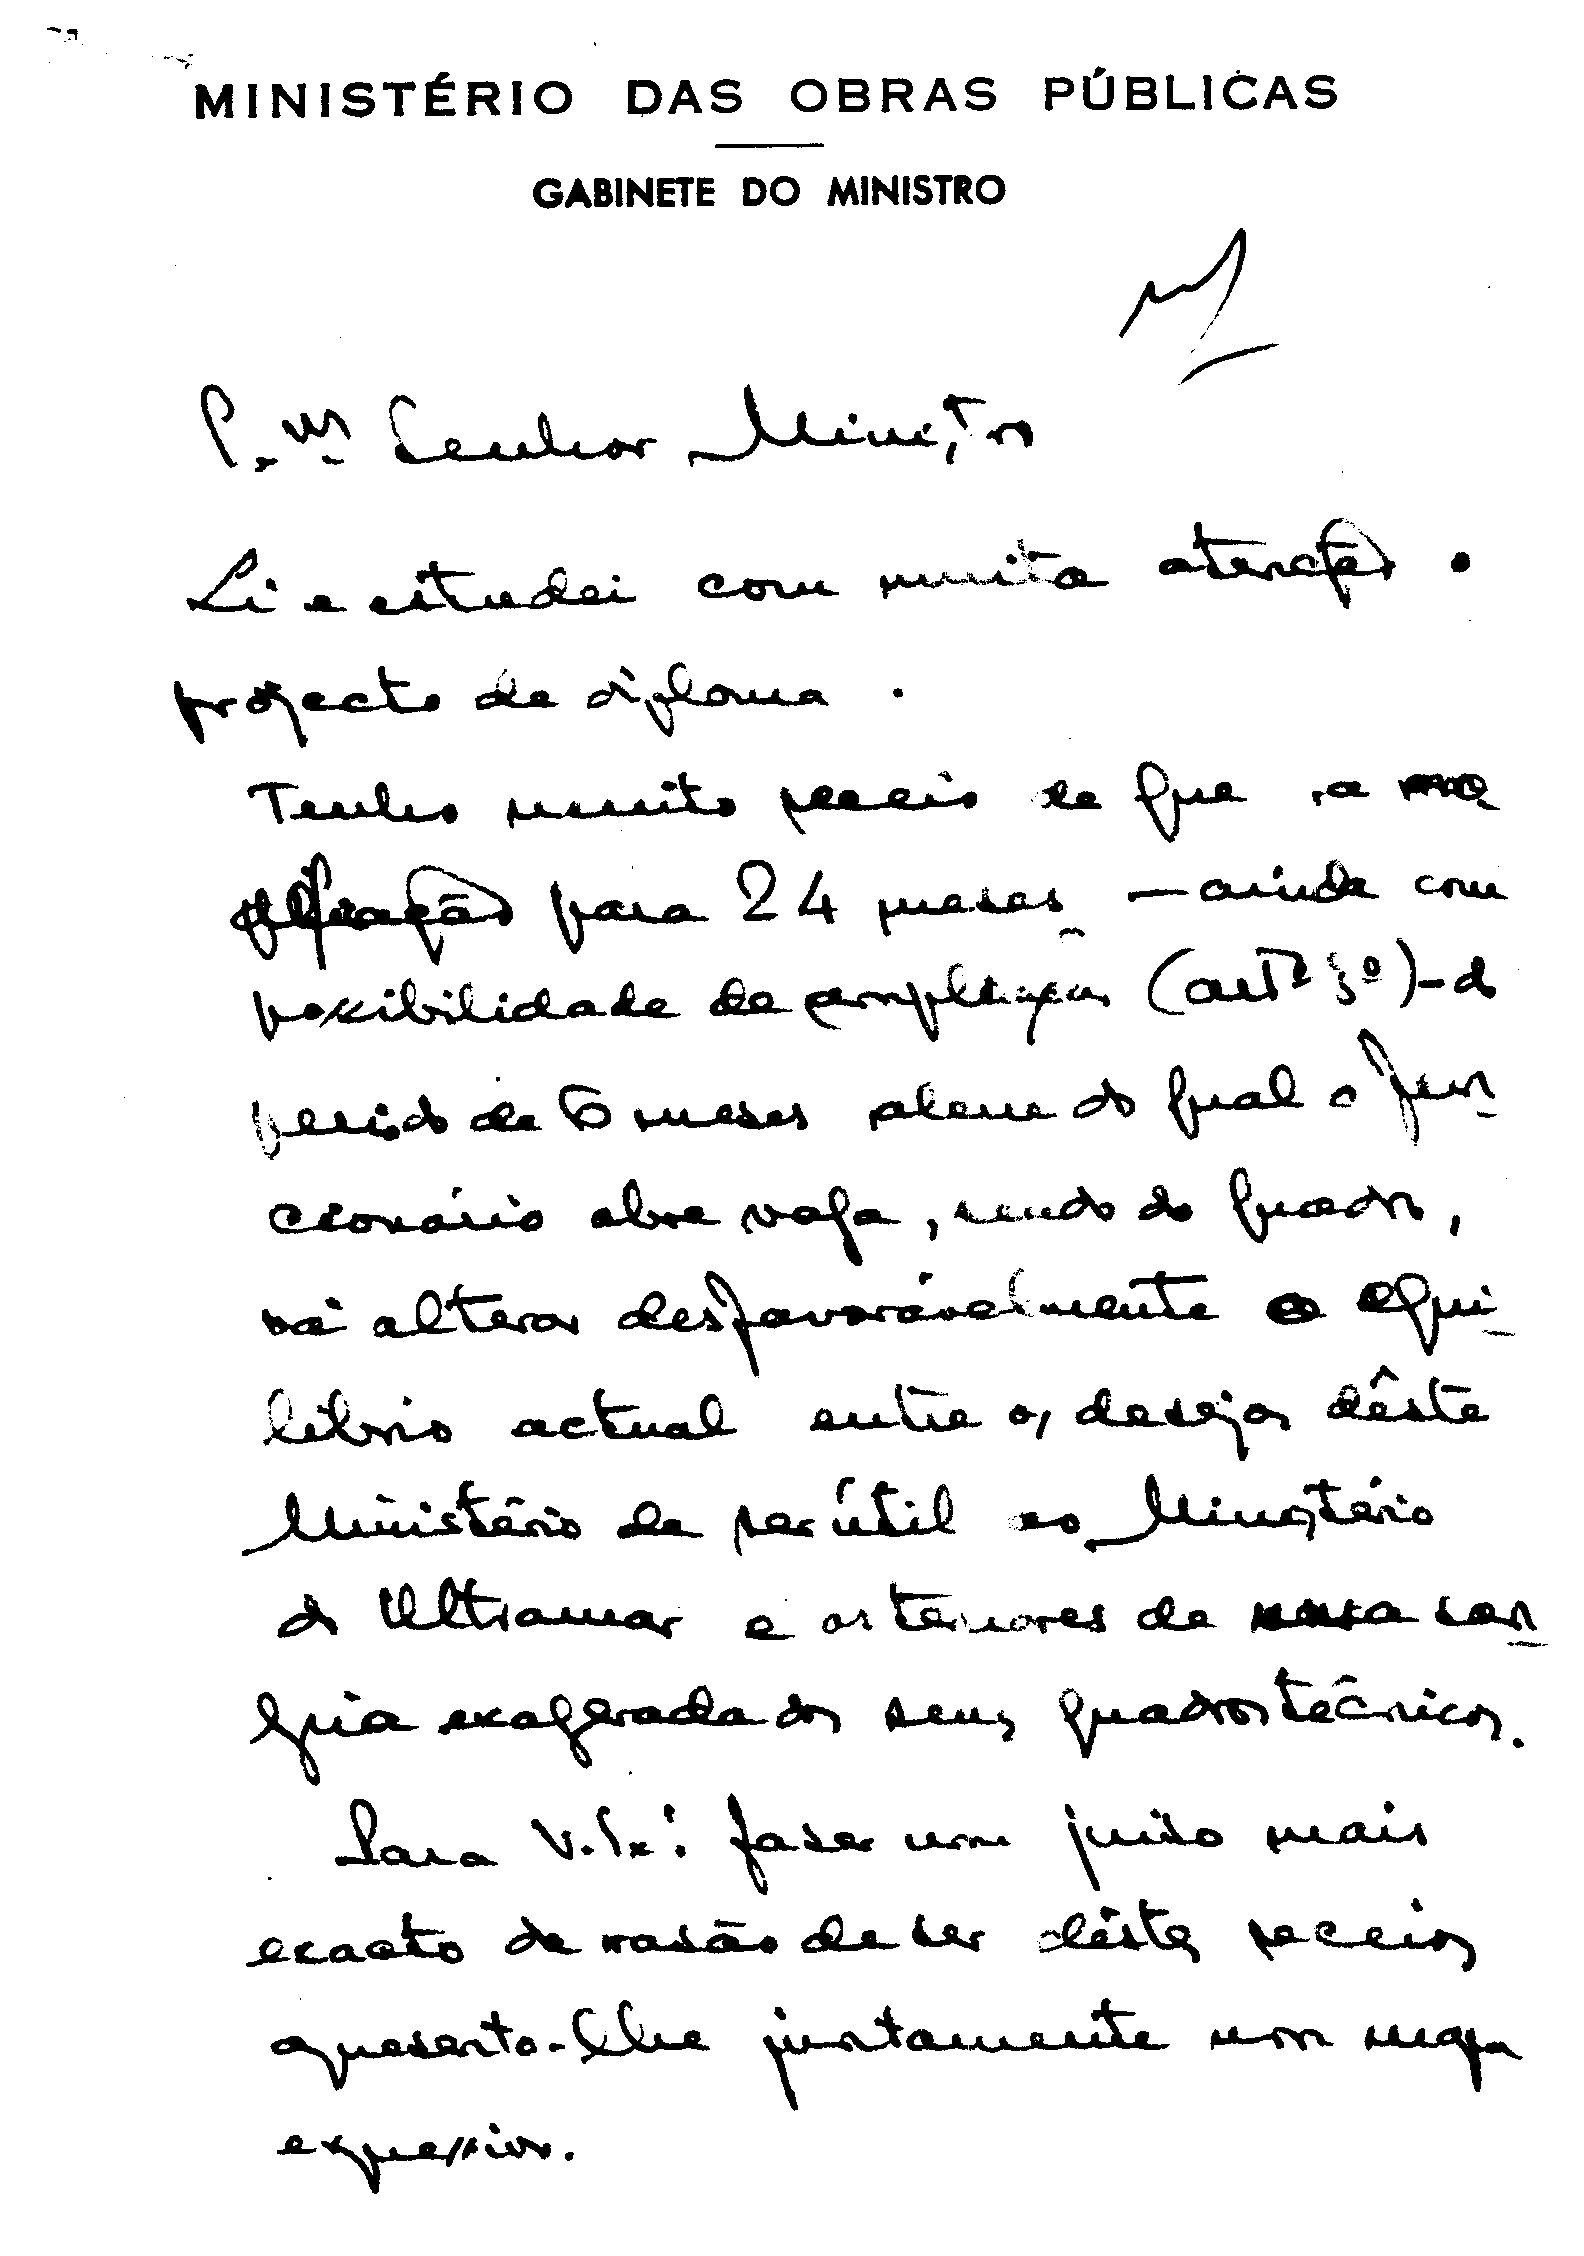 MINISTÉRIO DAS OBRAS PÚBLICAS
GABINETE DO MINISTRO
Senhor Ministro
Li e estudei com muita atenção o
projecto de diploma.
Tenho muito receio de que a
para 24 meses — ainda com
possibilidade de ampliação (artº 3º) — do
período de 6 meses alem do qual o fun-
cionário abre vaga, sendo do quadro,
vá alterar desfavoràvelmente o equi-
líbrio actual entre os desejos dêste
Ministério de ser útil ao Ministério
do Ultramar e os temores de uma san-
gria exagerada dos seus quadros técnicos.
Para V. Ex.ª fazer um juizo mais
exacto da razão de ser dêstes receios
apresento-lhe juntamente um mapa
expressivo.